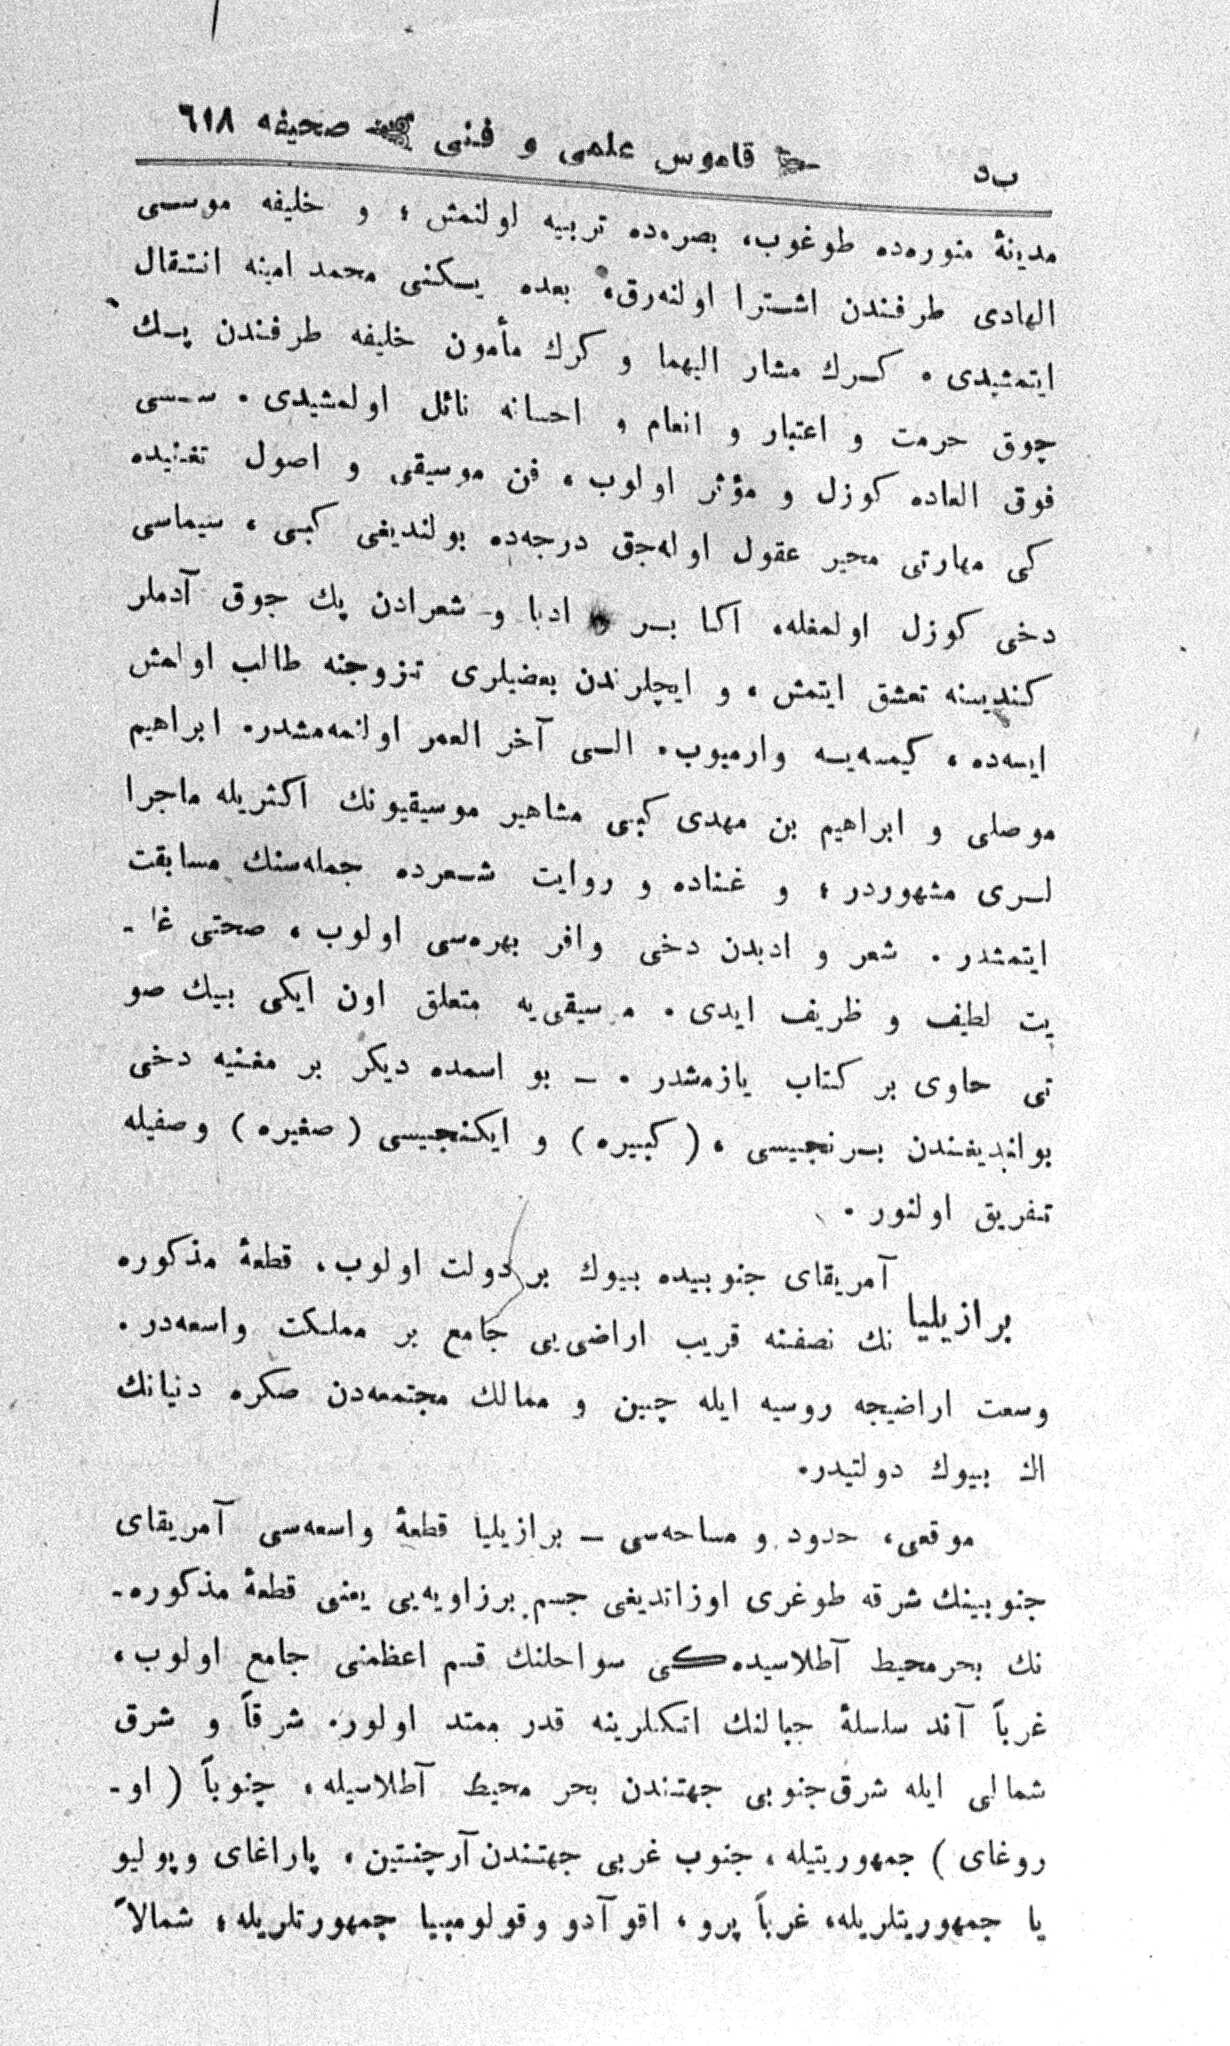 ب‌د قاموس علمى و فنى صحيفه ٦١٨
مدينۀ منوره‌ده طوغوب، بصره‌ده تربيه اولنمش ؛ و خليفه موسى
الهادى طرفندن اشترا اولنه‌رق، بعده يكنى محمد امينه انتقال
ايتمشيدى . كرك مشار اليهما و كرك مأمون خليفه طرفندن پك
چوق حرمت و اعتبار و انعام و احسانه نائل اولمشيدى . سسى
فوق العاده كوزل و مؤثر اولوب ، فن موسيقى و اصول تغنيده
كى مهارتى محير عقول اوله‌جق درجه‌ده بولنديغى كبى ، سيماسى
دخى كوزل اولمغله، اكابر و ادبا و شعرادن پك جوق آدملر
كنديسنه تعشق ايتمش ، و ايچلرندن بعضيلرى تزوجنه طالب اولمش
ايسه‌ده ، كيمسه‌يه وارميوب . الى آخر العمر اولنمه‌مشدر. ابراهيم
موصلى و ابراهيم بن مهدى كبى مشاهير موسيقيونك اكثريله ماجرا
لرى مشهوردر ؛ و غناده و روايت شعرده جمله‌سنك مسابقت
ايتمشدر . شعر و ادبدن دخى وافر بهره‌سى اولوب ، صحتى غا ـ
يت لطيف و ظريف ايدى . موسيقى‌يه متعلق اون ايكى بيك صو
تى حاوى بر كتاب يازمشدر . ــ بو اسمده ديكر بر مغنيه دخى
بولنديغندن برنجيسى ، ( كبيره ) و ايكنجيسى ( صغيره ) وصفيله
تفريق اولنور .
برازيليا آمريقاى جنوبيده بيوك بر دولت اولوب، قطعۀ مذكوره
نك نصفنه قريب اراضى‌يى جامع بر مملكت واسعه‌در .
وسعت اراضيجه روسيه ايله چين و ممالك مجتمعه‌دن صكره دنيانك
اك بيوك دولتيدر.
موقعى، حدود و مساحه‌سى ــ برازيليا قطعۀ واسعه‌سى آمريقاى
جنوبينك شرقه طوغرى اوزانديغى جسم برزاويه‌يى يعنى قطعۀ مذكوره ـ
نك بحرمحيط آطلاسيده‌كى سواحلنك قسم اعظمنى جامع اولوب ،
غرباً آند سلسلۀ جبالنك اتكلرينه قدر ممتد اولور. شرقاً و شرق
شمالى ايله شرق‌جنوبى جهتندن بحر محيط آطلاسيله ، جنوباً ( او ـ
روغاى ) جمهوريتيله ، جنوب غربى جهتندن آرچنتين ، پاراغاى وپوليو
يا جمهوريتلريله، غرباً پرو ، اقوآدو وقولومبيا جمهورتلريله ، شمالاً